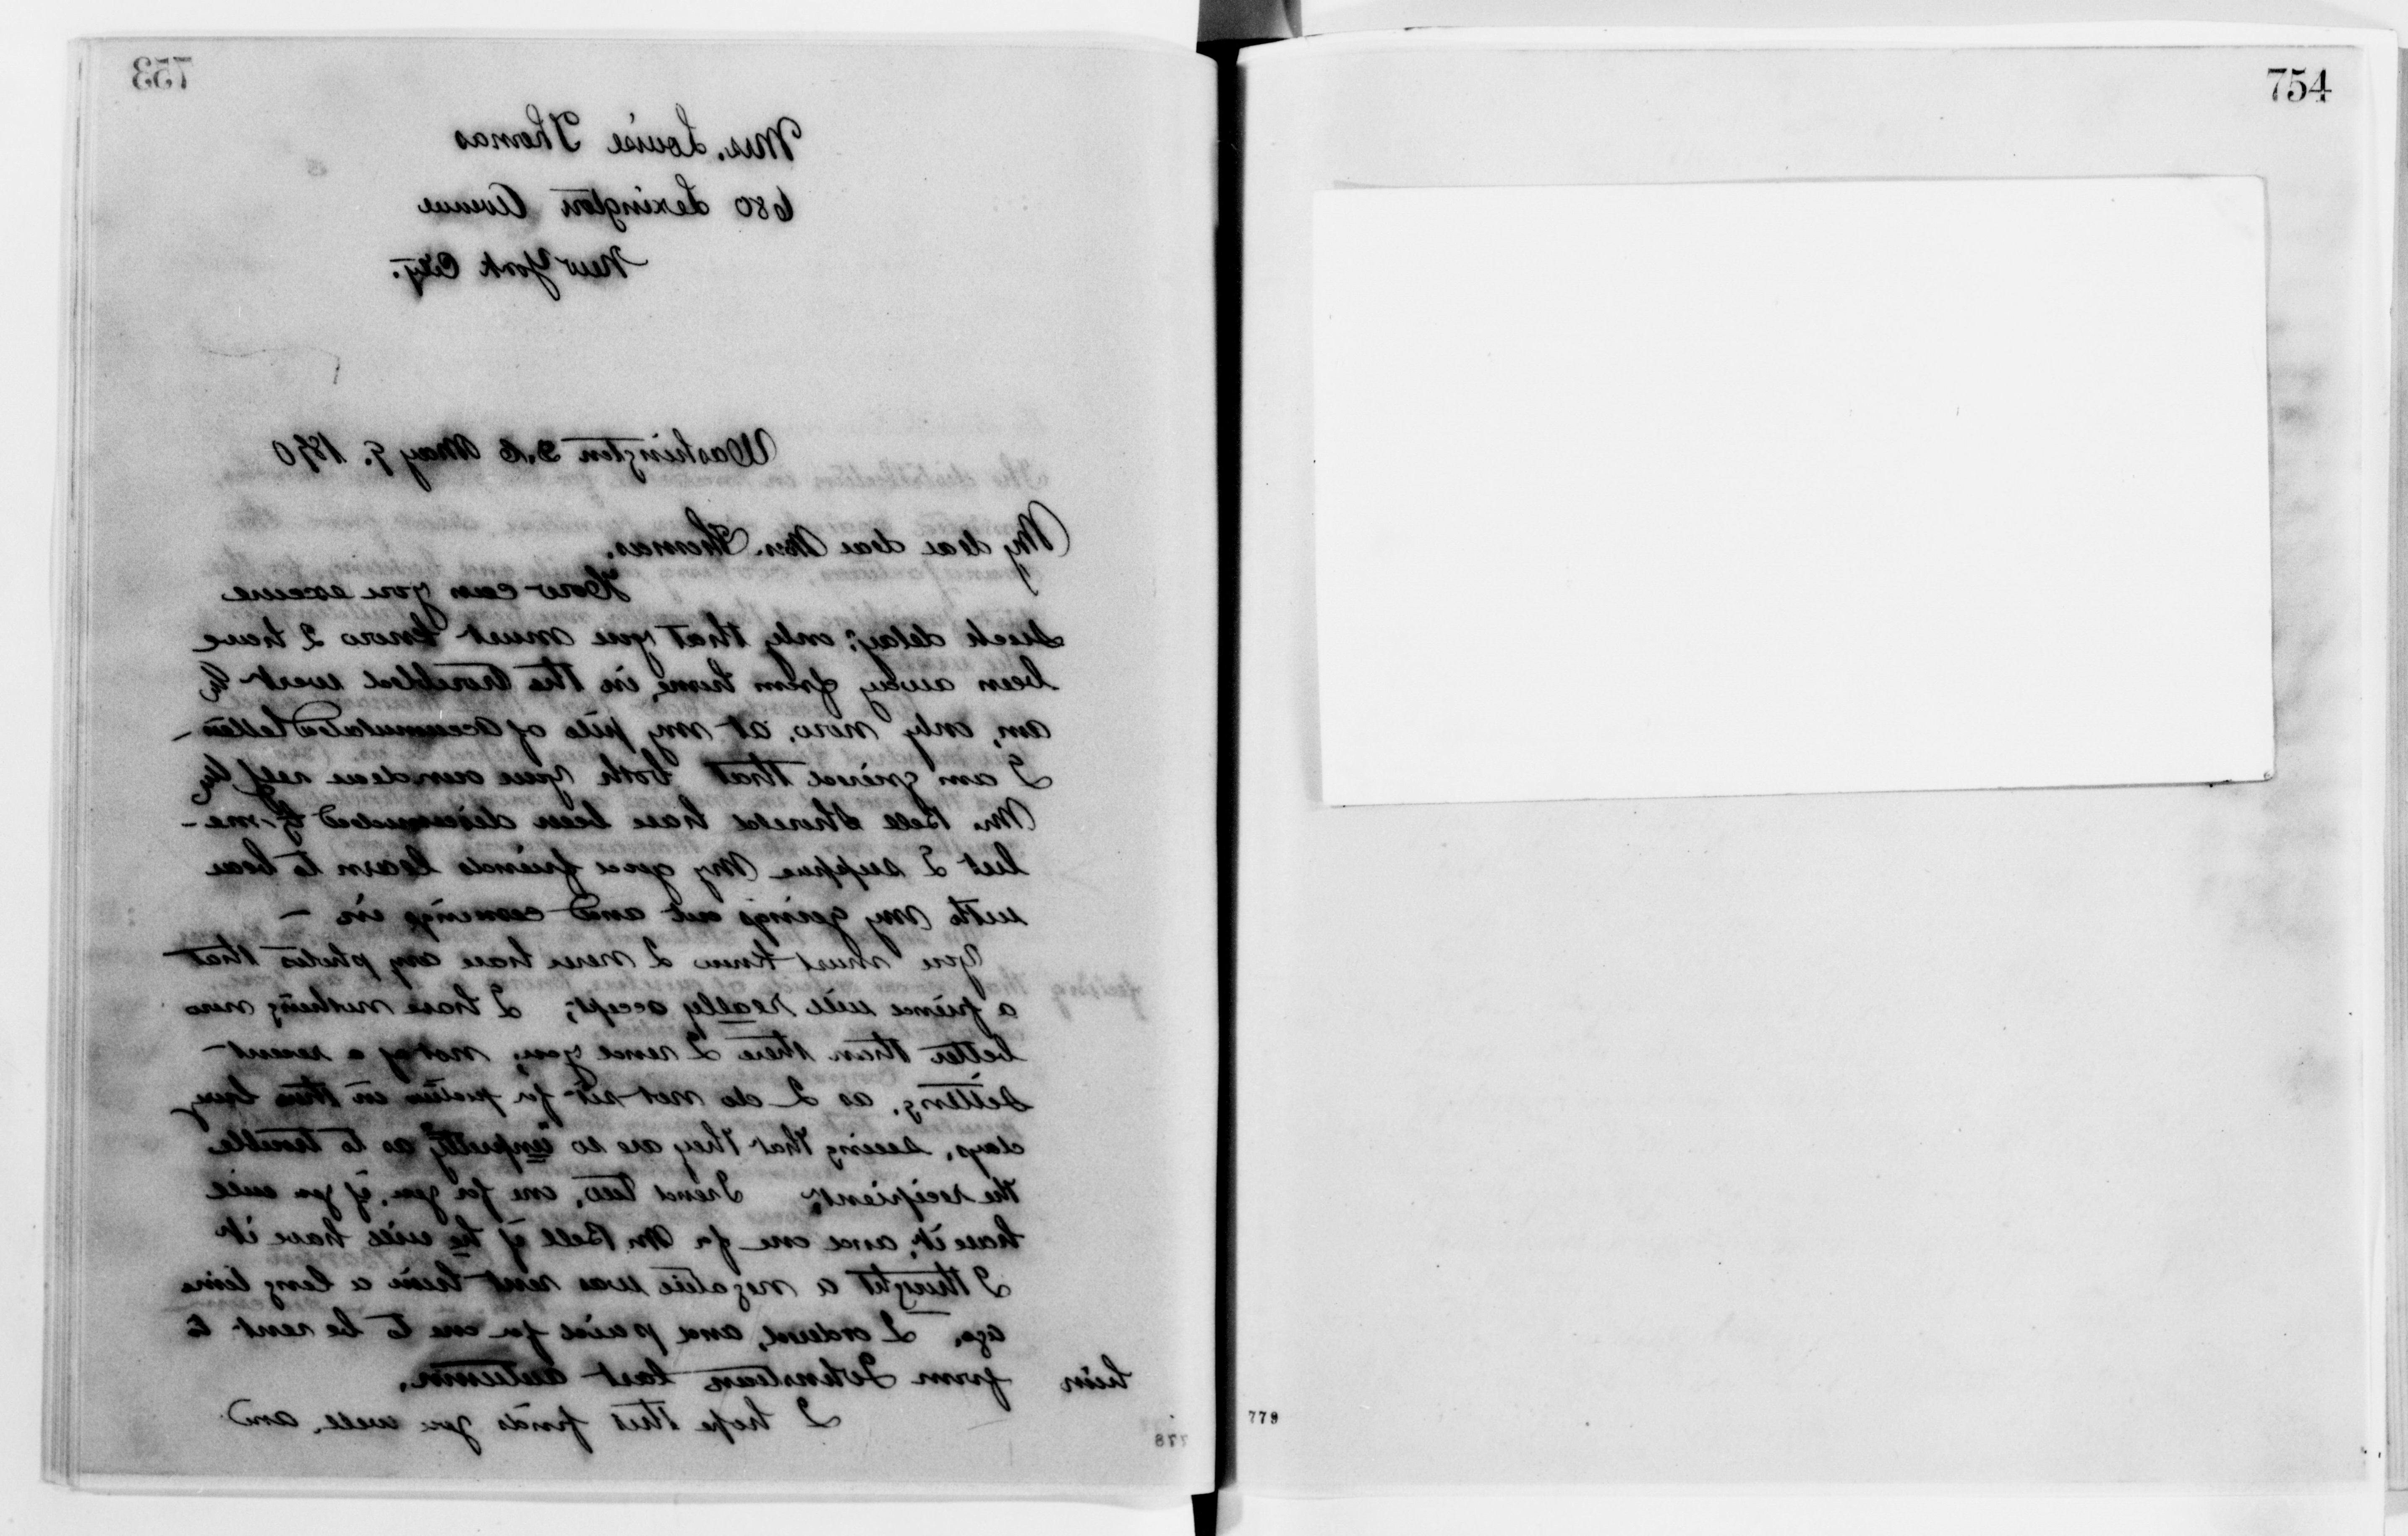 753
Mrs. Louise Thomas
680 Lexington Avenue
New York City.
Washington D.C. May 9. 1890
My dear dear Mrs. Thomas.
How can you excuse
such delay; only that you must know I have
been away from home, in the troubled west &
am, only now, at my pile of accumulated letters –
I am grieved that both your own dear self &
Mr. Bell should have been discomoded by me –
but I suppose my good friends learn to bear
with my going's out and comings in –
You must know I never have any photos that
a friend will really accept; I have nothing now
better than these I send you, not of a recent
setting, as I do not sit for pictures in these busy
days, seeing that they are so "unpretty" as to trouble
the recipient. I send two, one for you, if you will
have it, and one for Mr Bell if he will have it
I thought a negative was sent him a long time
ago. I ordered, and paid for one to be sent to
him from Johnstown last autumn.
I hope this finds you well, and
778
754
779